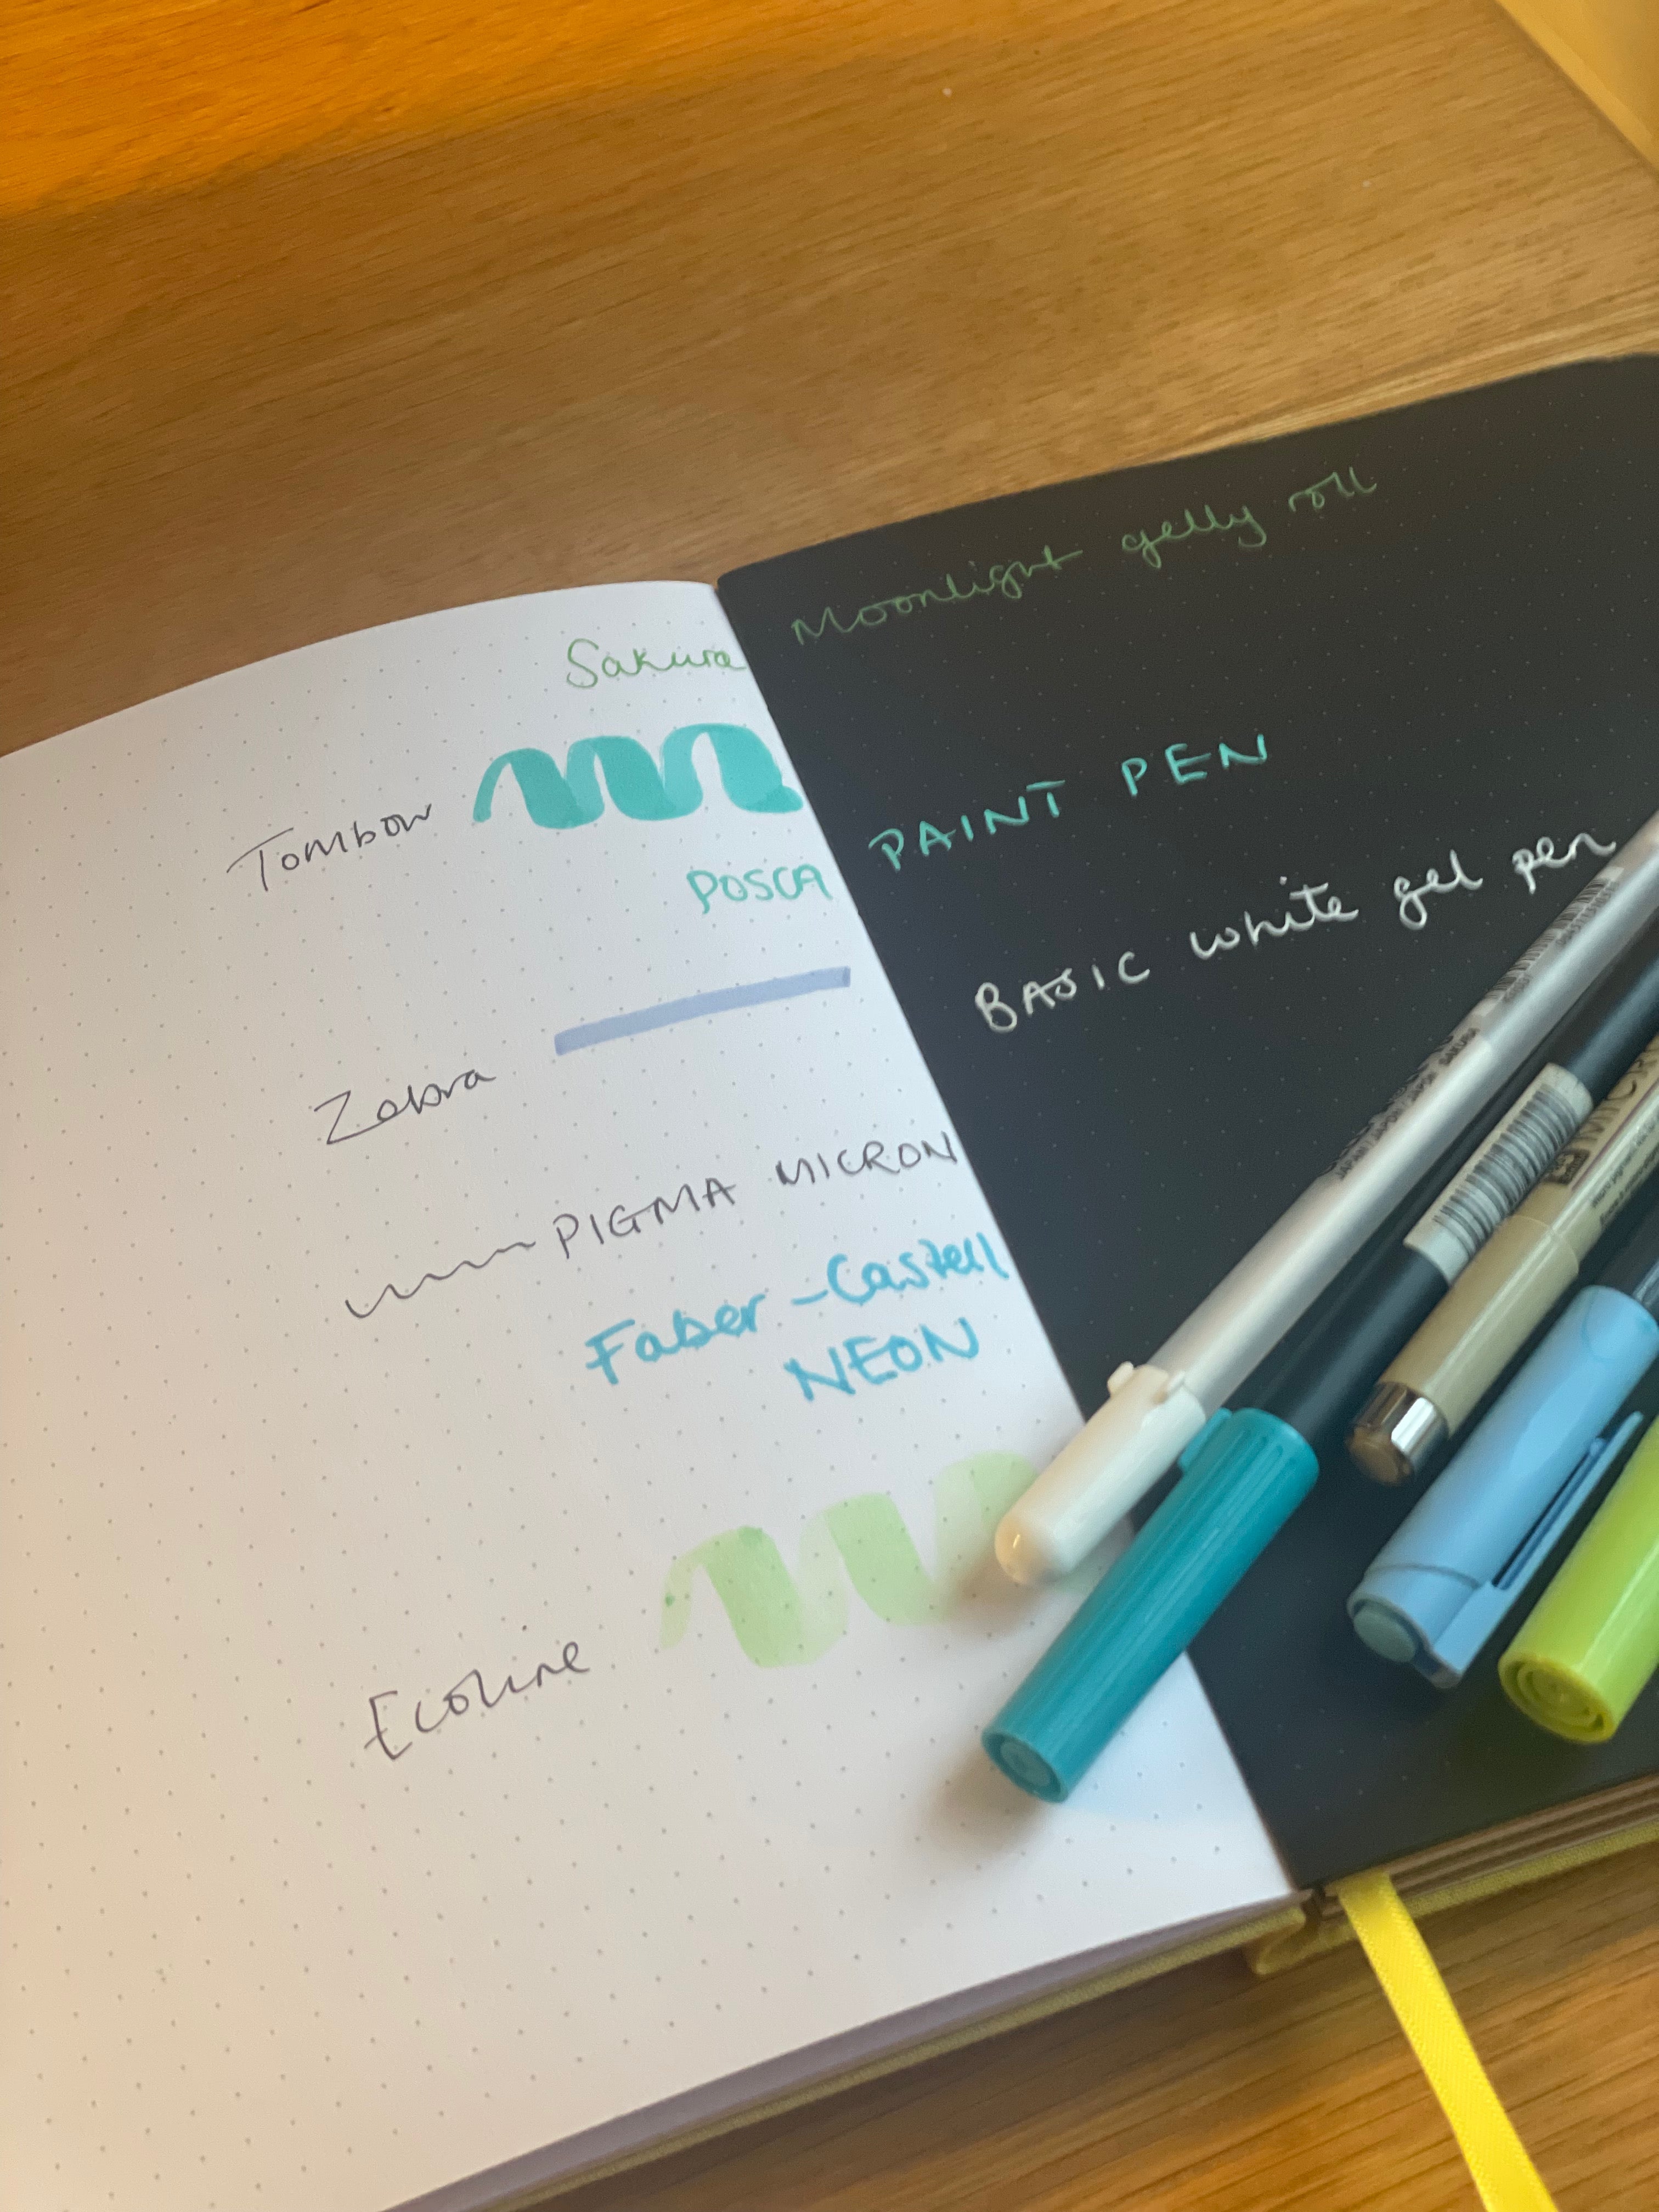 Sakura Moonlight gelly roll
Tombow
POSCA PAINT PEN
BASIC white gel pen
Zebra
PIGMA MICRON
Faber-Castell
NEON
Ecoline